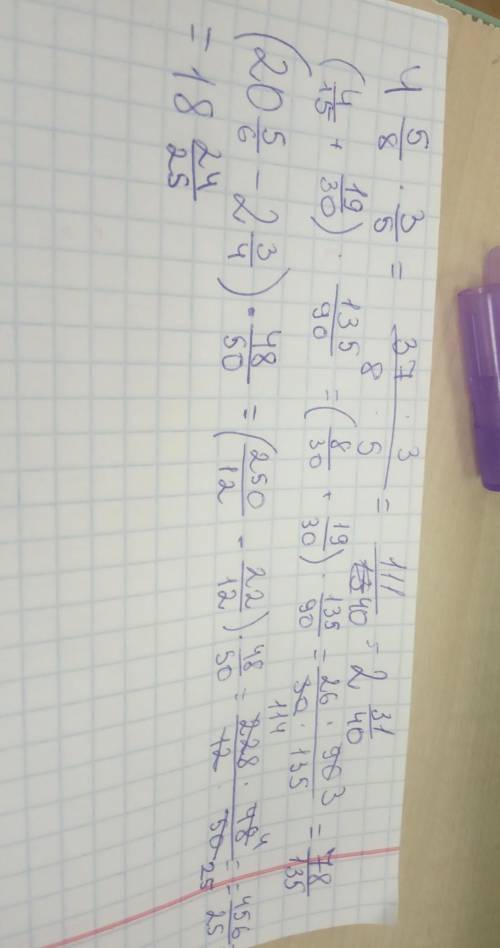 4 5/8 · 3/5 = 37 · 3 / 8 · 5 = 111/40 = 2 31/40
(4/15 + 19/30) · 135/90 = (8/30 + 19/30) · 135/90 = 26 · 90 3 / 30 · 135 = 78/135
(20 5/6 - 2 3/4) · 48/50 = (250/12 - 22/12) · 48/50 = 114 228 · 48 4 / 12 · 50 25 = 456/25
= 18 24/25